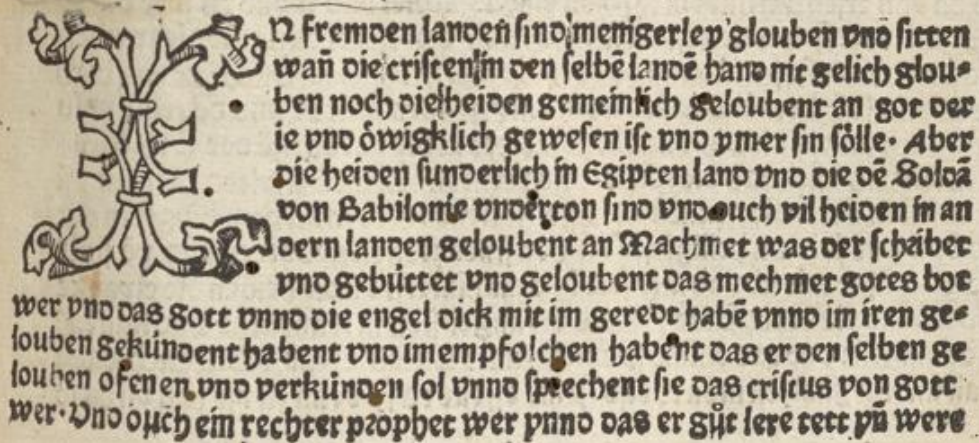 IN fremden landen sind menigerley glouben vnd sitten
wañ die cristen im den selbē landē hand nit gelich glou⸗
ben noch die heiden gemeinlich geloubent an got der
ie vnd öwigklich gewesen ist vnd ymer sin sölle· Aber
die heiden sunderlich in Egipten land vnd die dē Soldā
von Babilonie vnderton sind vnd ouch vil heiden in an
dern landen geloubent an Machmet was der schribet
vnd gebüttet vnd geloubent das mechmet gotes bot
wer vnd das gott vnnd die engel dick mit im geredt habē vnnd im iren ge⸗
louben gekündent habent vnd im empfolchen habent das er den selben ge
louben ofenen vnd verkünden sol vnnd sprechent sie das cristus von gott
wer· Vnd oůch ein rechter prophet wer vnnd das er gůt lere tett vñ were